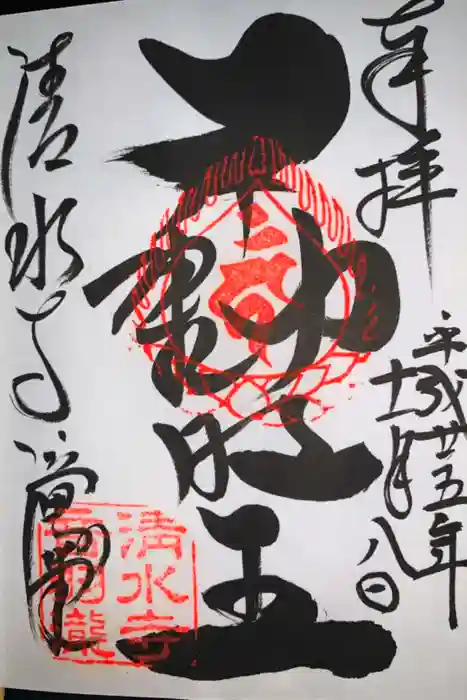 奉拝
平成廿五年
十一月八日
不動明王
清水寺
清水寺
音羽瀧